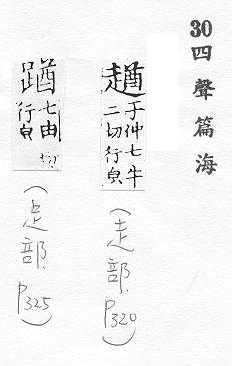 30四聲篇海
趥
于仲七牛
二切行皃
(走部.P320)
䠓
七由
行皃
(足部.P325)